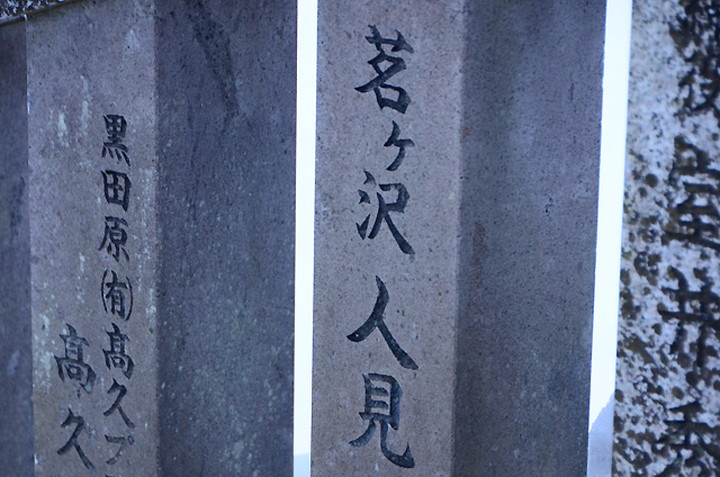 茗ヶ沢 人見
黒田原㈲髙久プ
髙久